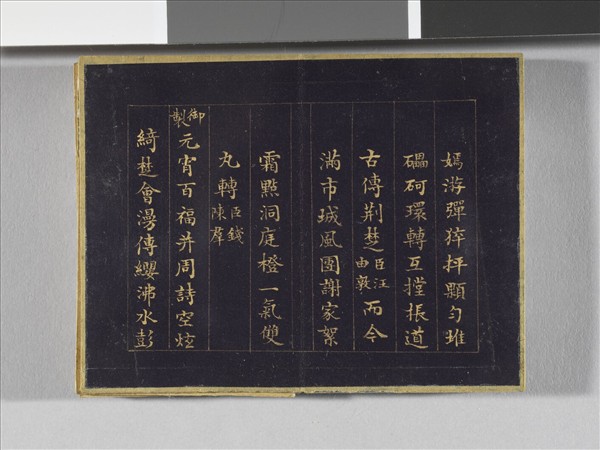 嫣游彈猝抨顆勻堆
礧砢環轉互摚棖道
古傳荊楚臣汪由敦而今
滿市城風團謝家絮
霜點洞庭橙一氣雙
丸轉臣錢陳群
御製元宵百福并周詩空炫
綺楚會漫傳纓沸水彭